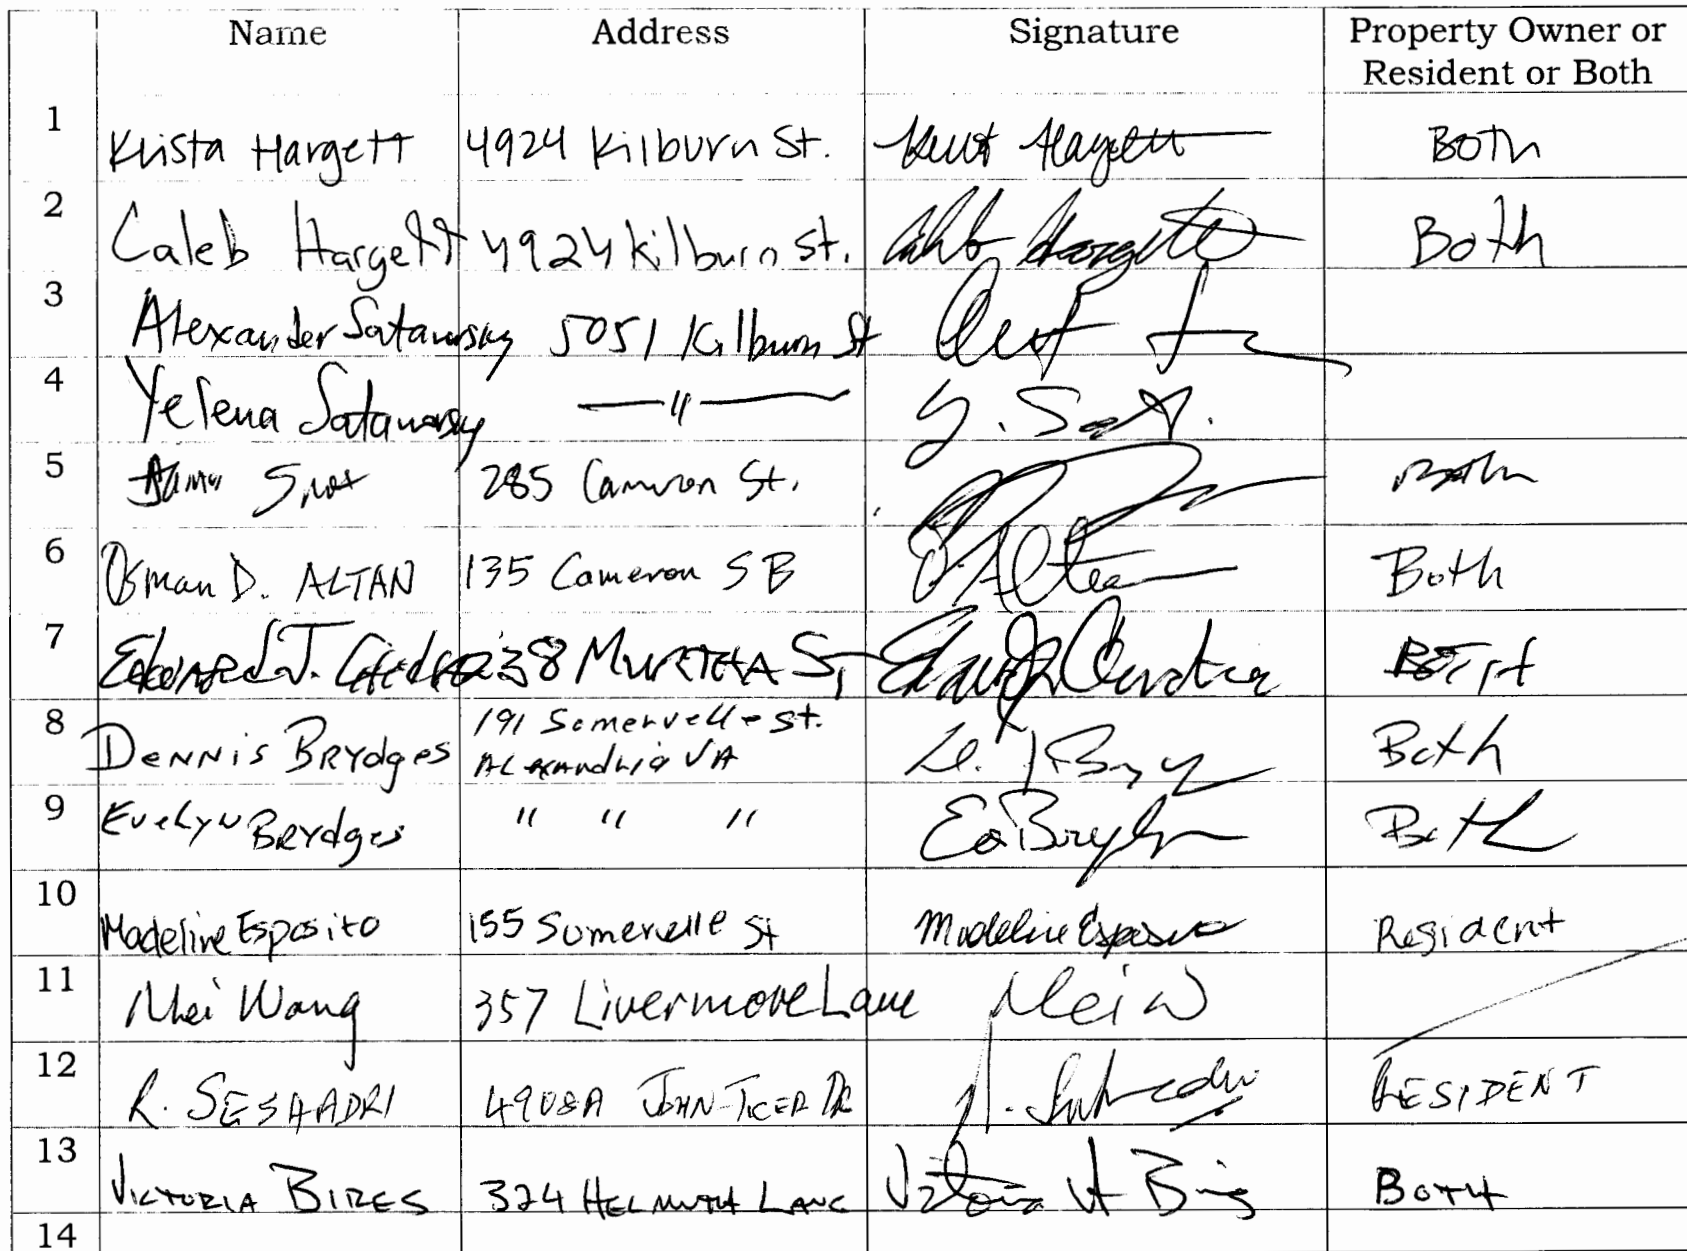 Name Address Signature Property Owner or
Resident or Both
1 Krista Hargett 4924 Kilburn St. Hargett Both
2 Caleb Hargett 4924 Kilburn St. Caleb Hargett Both
3 Alexander Satanovsky 5051 Kilburn St
4 Yelena Satanovsky — " — Y. Sat.
5 285 Cameron St. Both
6 Osman D. ALTAN 135 Cameron SB Altan Both
7 Edward J. 38 MURTHA St Edward J BOTH
8 Dennis BRYdges 191 Somervelle St. Both
Alexandria VA
9 Evelyn BRYdges " " " Both
10 Madeline Esposito 155 Somervelle St Madeline Esposito Resident
11 Mei Wang 357 Livermore Lane Mei W
12 R. SESHADRI 4908A JOHN TICER DR RESIDENT
13 VICTORIA BIRES 324 HELMUTH LANE Victoria Both
14